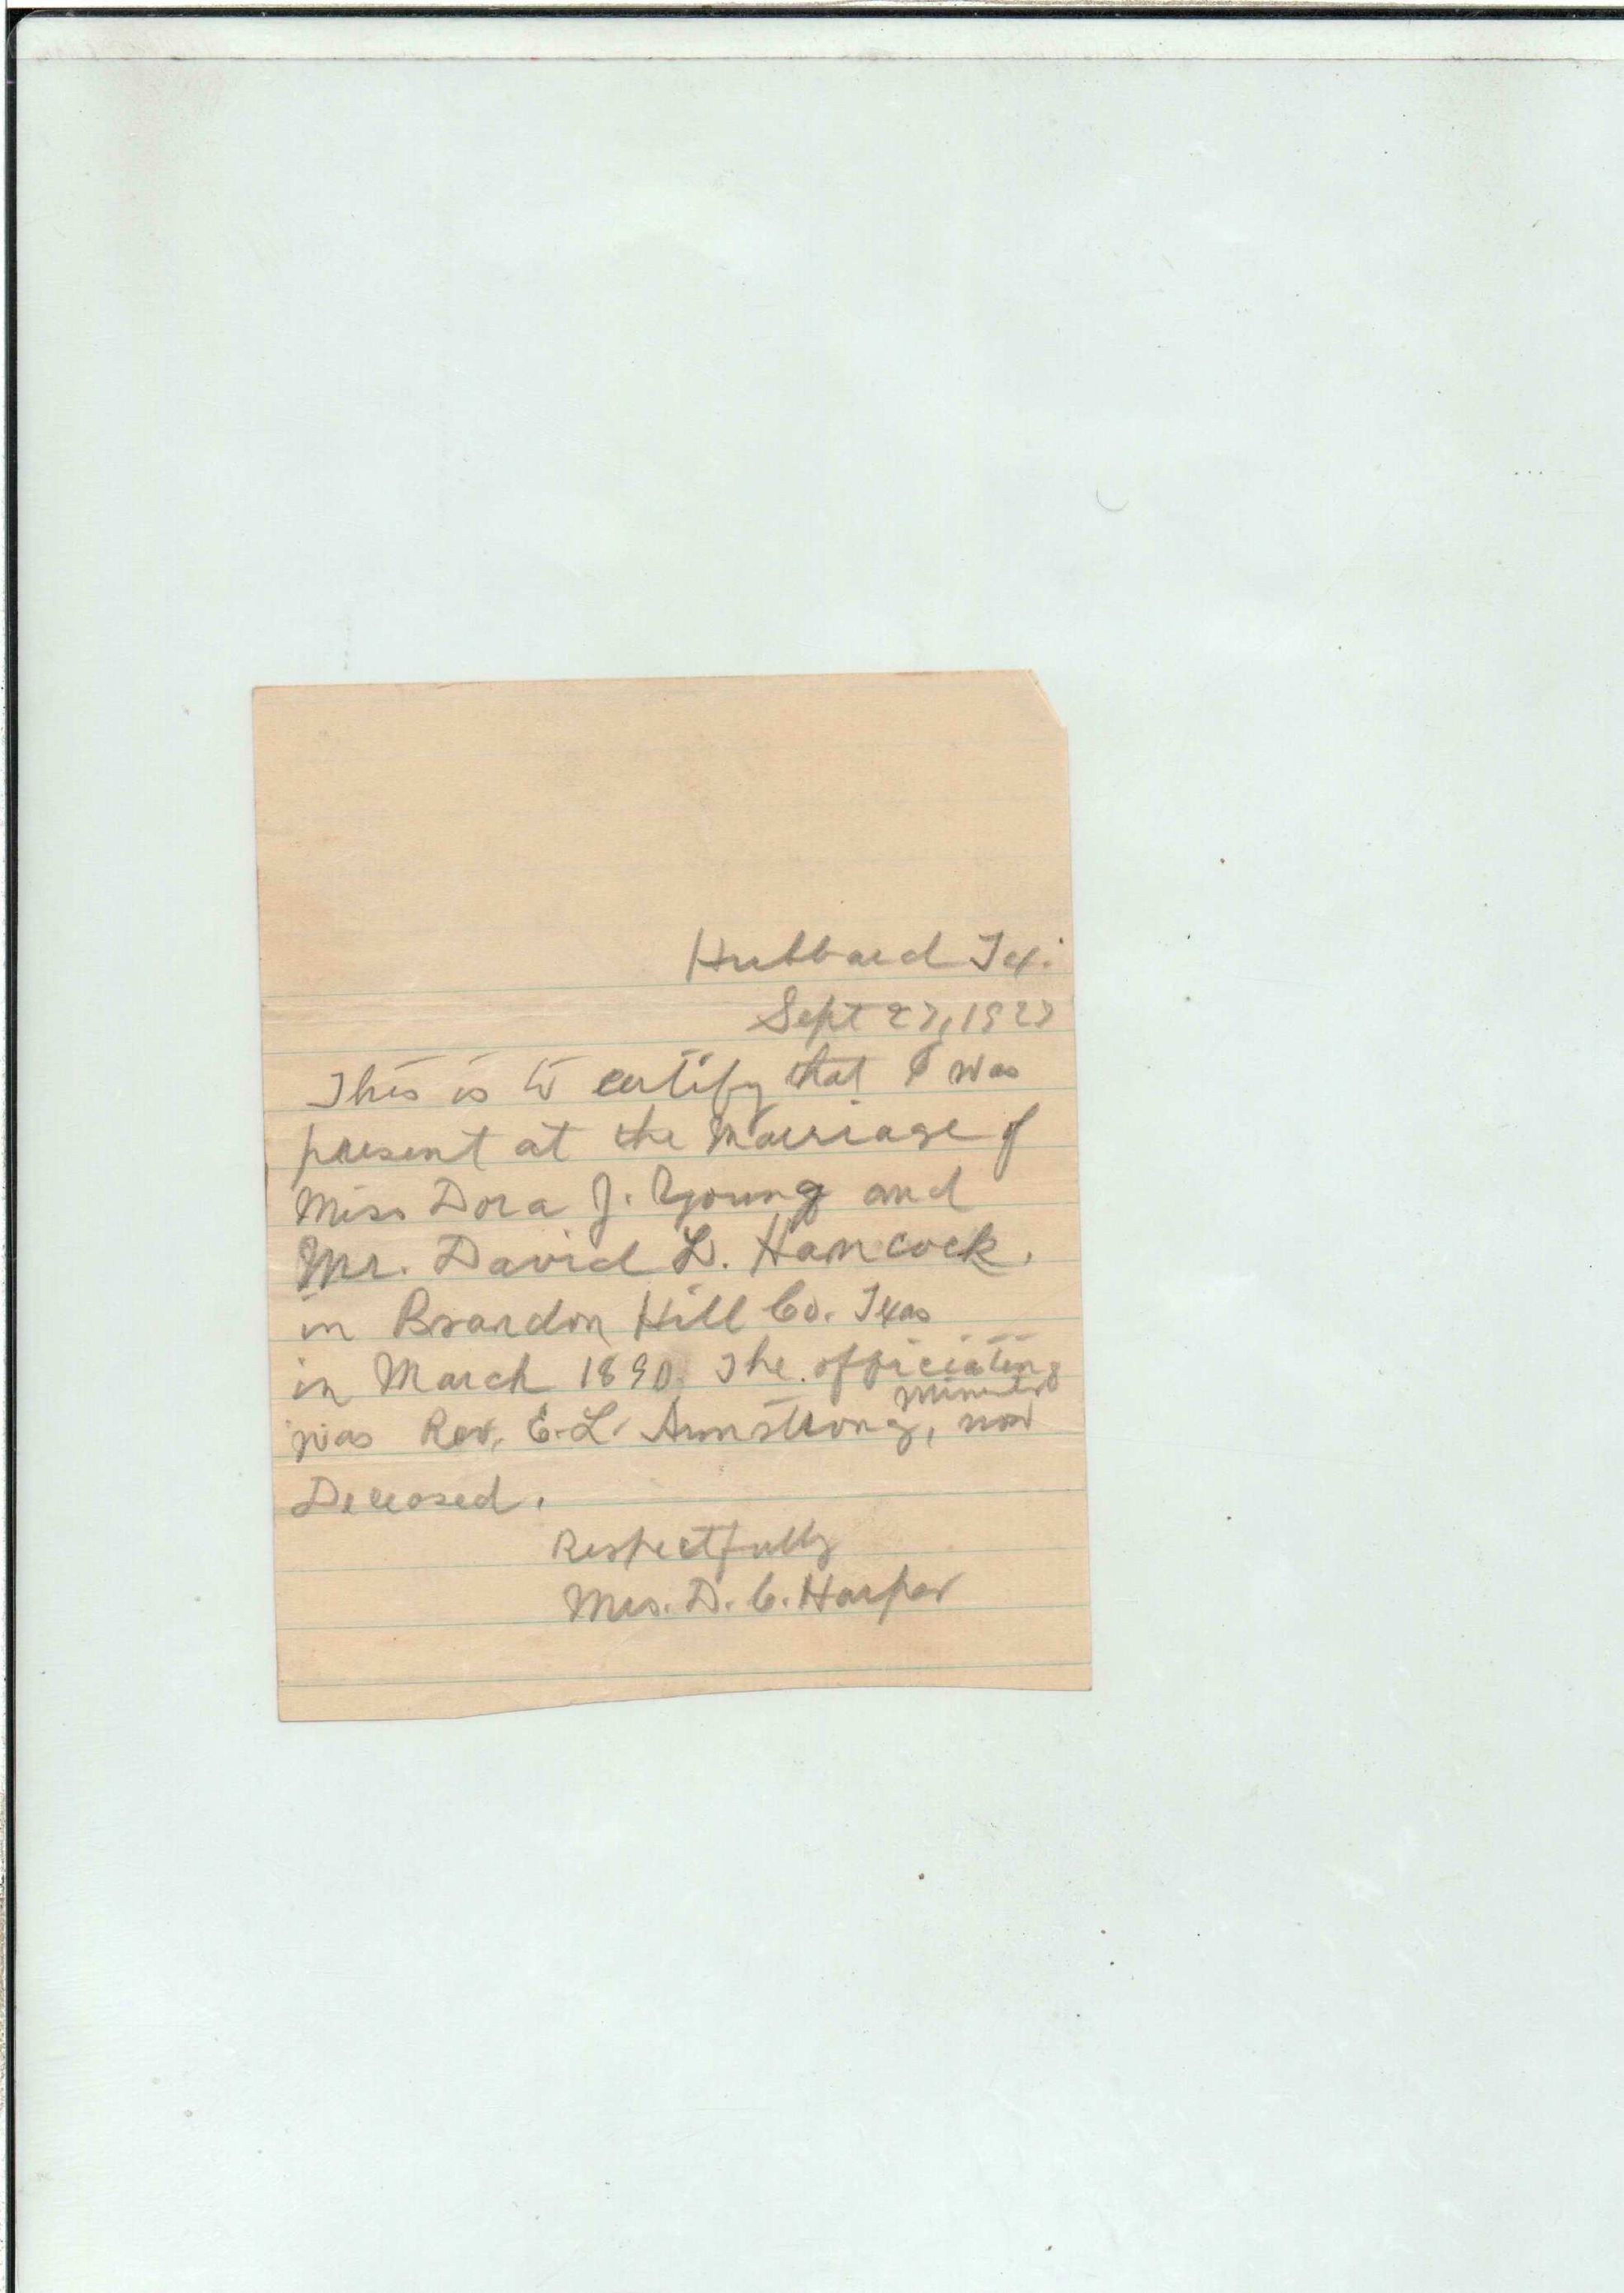 Hubbard Tex.
Sept 27, 1927
This is to certify that I was
present at the Marriage of
Miss Dora J. Young and
Mr. David L. Hancock.
in Brandon Hill Co. Texas
in March 1890. The officiating
Minister
was Rev. E. L. Armstrong, now
Deceased.
Respectfully
Mrs. D. C. Harper